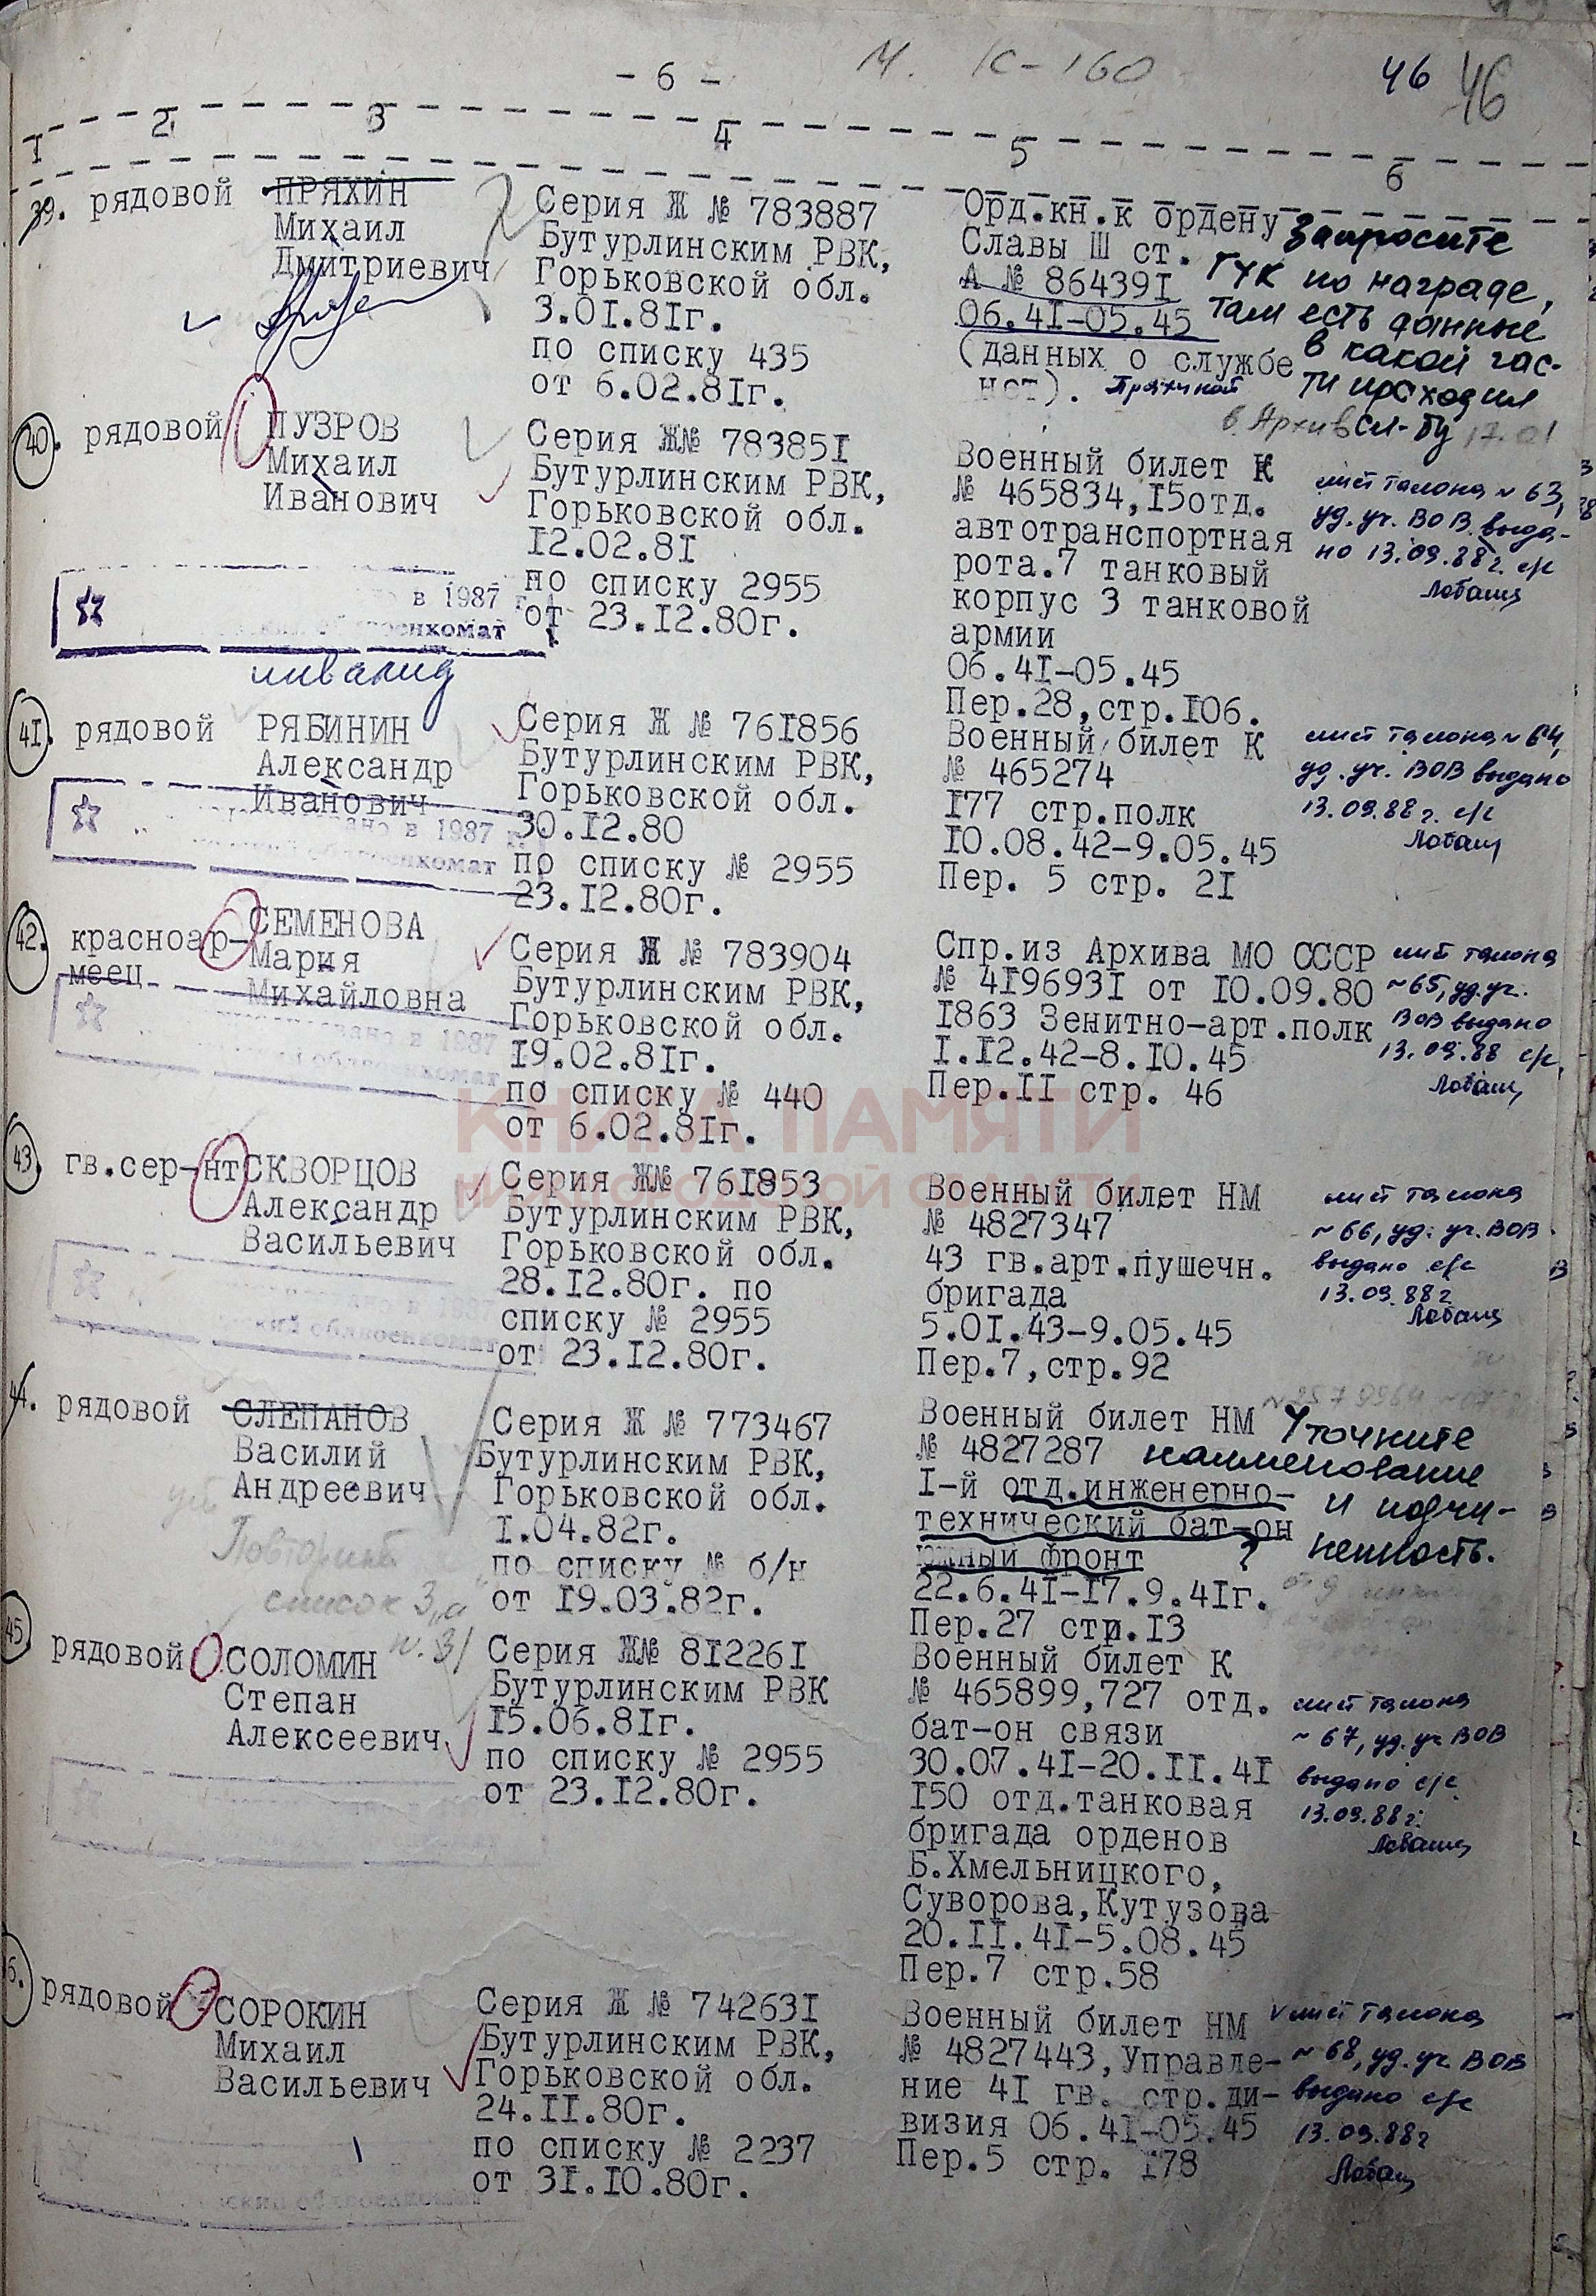 - 6 -
М. К-160
46 46
1 2 3 4 5 6
39. рядовой
ПРЯХИН
Михаил
Дмитриевич
Серия Ж № 783887
Бутурлинским РВК,
Горьковской обл.
3.01.81г.
по списку 435
от 6.02.81г.
Орд.кн.к ордену
Славы Ш ст.
А № 864391
06.41-05.45
(данных о службе
нет).
Запросите
ГУК по награде,
там есть данные
в какой час-
ти проходил
сл-бу 17.01
в Архив
40. рядовой
ПУЗРОВ
Михаил
Иванович
Серия Ж№ 783851
Бутурлинским РВК,
Горьковской обл.
12.02.81
по списку 2955
от 23.12.80г.
Военный билет К
№ 465834,15отд.
автотранспортная
рота.7 танковый
корпус 3 танковой
армии
06.41-05.45
Пер.28,стр.106.
лист талона ~ 63,
уд.уч. ВОВ выда-
но 13.09.88г. с/с
в 1987 г.
военкомат
инвалид
41. рядовой
РЯБИНИН
Александр
Иванович
Серия Ж № 761856
Бутурлинским РВК,
Горьковской обл.
30.12.80
по списку № 2955
23.12.80г.
Военный билет К
№ 465274
177 стр.полк
10.08.42-9.05.45
Пер. 5 стр. 21
лист талона ~ 64,
уд.уч. ВОВ выдано
13.09.88г. с/с
в 1987
облвоенкомат
42. красноар-
меец
СЕМЕНОВА
Мария
Михайловна
Серия Ж № 783904
Бутурлинским РВК,
Горьковской обл.
19.02.81г.
по списку № 440
от 6.02.81г.
Спр.из Архива МО СССР
№ 4196931 от 10.09.80
1863 Зенитно-арт.полк
1.12.42-8.10.45
Пер.II стр. 46
лист талона
~65, уд.уч.
ВОВ выдано
13.09.88 с/с,
в 1987
КНИГА ПАМЯТИ
НИЖЕГОРОДСКОЙ ОБЛАСТИ
43. гв.сер-нт
СКВОРЦОВ
Александр
Васильевич
Серия Ж№ 761853
Бутурлинским РВК,
Горьковской обл.
28.12.80г. по
списку № 2955
от 23.12.80г.
Военный билет НМ
№ 4827347
43 гв.арт.пушечн.
бригада
5.01.43-9.05.45
Пер.7,стр.92
лист талона
~ 66, уд. уч. ВОВ
выдано с/с
13.09.88г
в 1987
облвоенкомат
44. рядовой
СЛЕПАНОВ
Василий
Андреевич
Серия Ж № 773467
Бутурлинским РВК,
Горьковской обл.
1.04.82г.
по списку № б/н
от 19.03.82г.
Военный билет НМ
№ 4827287
I-й отд.инженерно-
технический бат-он
южный фронт ?
22.6.41-17.9.41г.
Пер.27 стр.13
Уточните
наименование
и подчи-
ненность.
Повторный
список 3„а"
п. 31
45. рядовой
СОЛОМИН
Степан
Алексеевич
Серия Ж№ 812261
Бутурлинским РВК
15.06.81г.
по списку № 2955
от 23.12.80г.
Военный билет К
№ 465899,727 отд.
бат-он связи
30.07.41-20.11.41
150 отд.танковая
бригада орденов
Б.Хмельницкого,
Суворова,Кутузова
20.11.41-5.08.45
Пер.7 стр.58
лист талона
~ 67, уд.уч ВОВ
выдано с/с
13.09.88г.
6. рядовой
СОРОКИН
Михаил
Васильевич
Серия Ж № 742631
Бутурлинским РВК,
Горьковской обл.
24.11.80г.
по списку № 2237
от 31.10.80г.
Военный билет НМ
№ 4827443,Управле-
ние 41 гв. стр.ди-
визия 06.41-05.45
Пер.5 стр. 178
лист талона
~ 68, уд.уч ВОВ
выдано с/с
13.09.88г